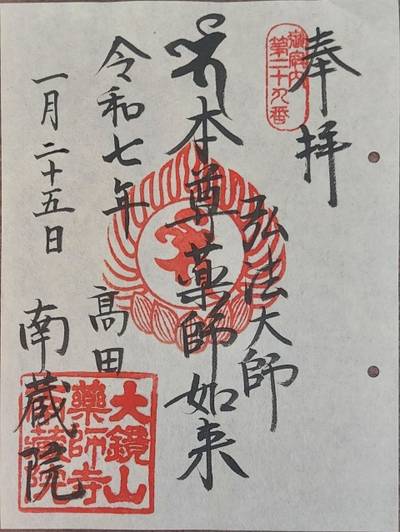 奉拝
御府内
第二十九番
弘法大師
本尊薬師如来
令和七年
一月二十五日
高田
南蔵院
大鏡山
薬師寺
南蔵院